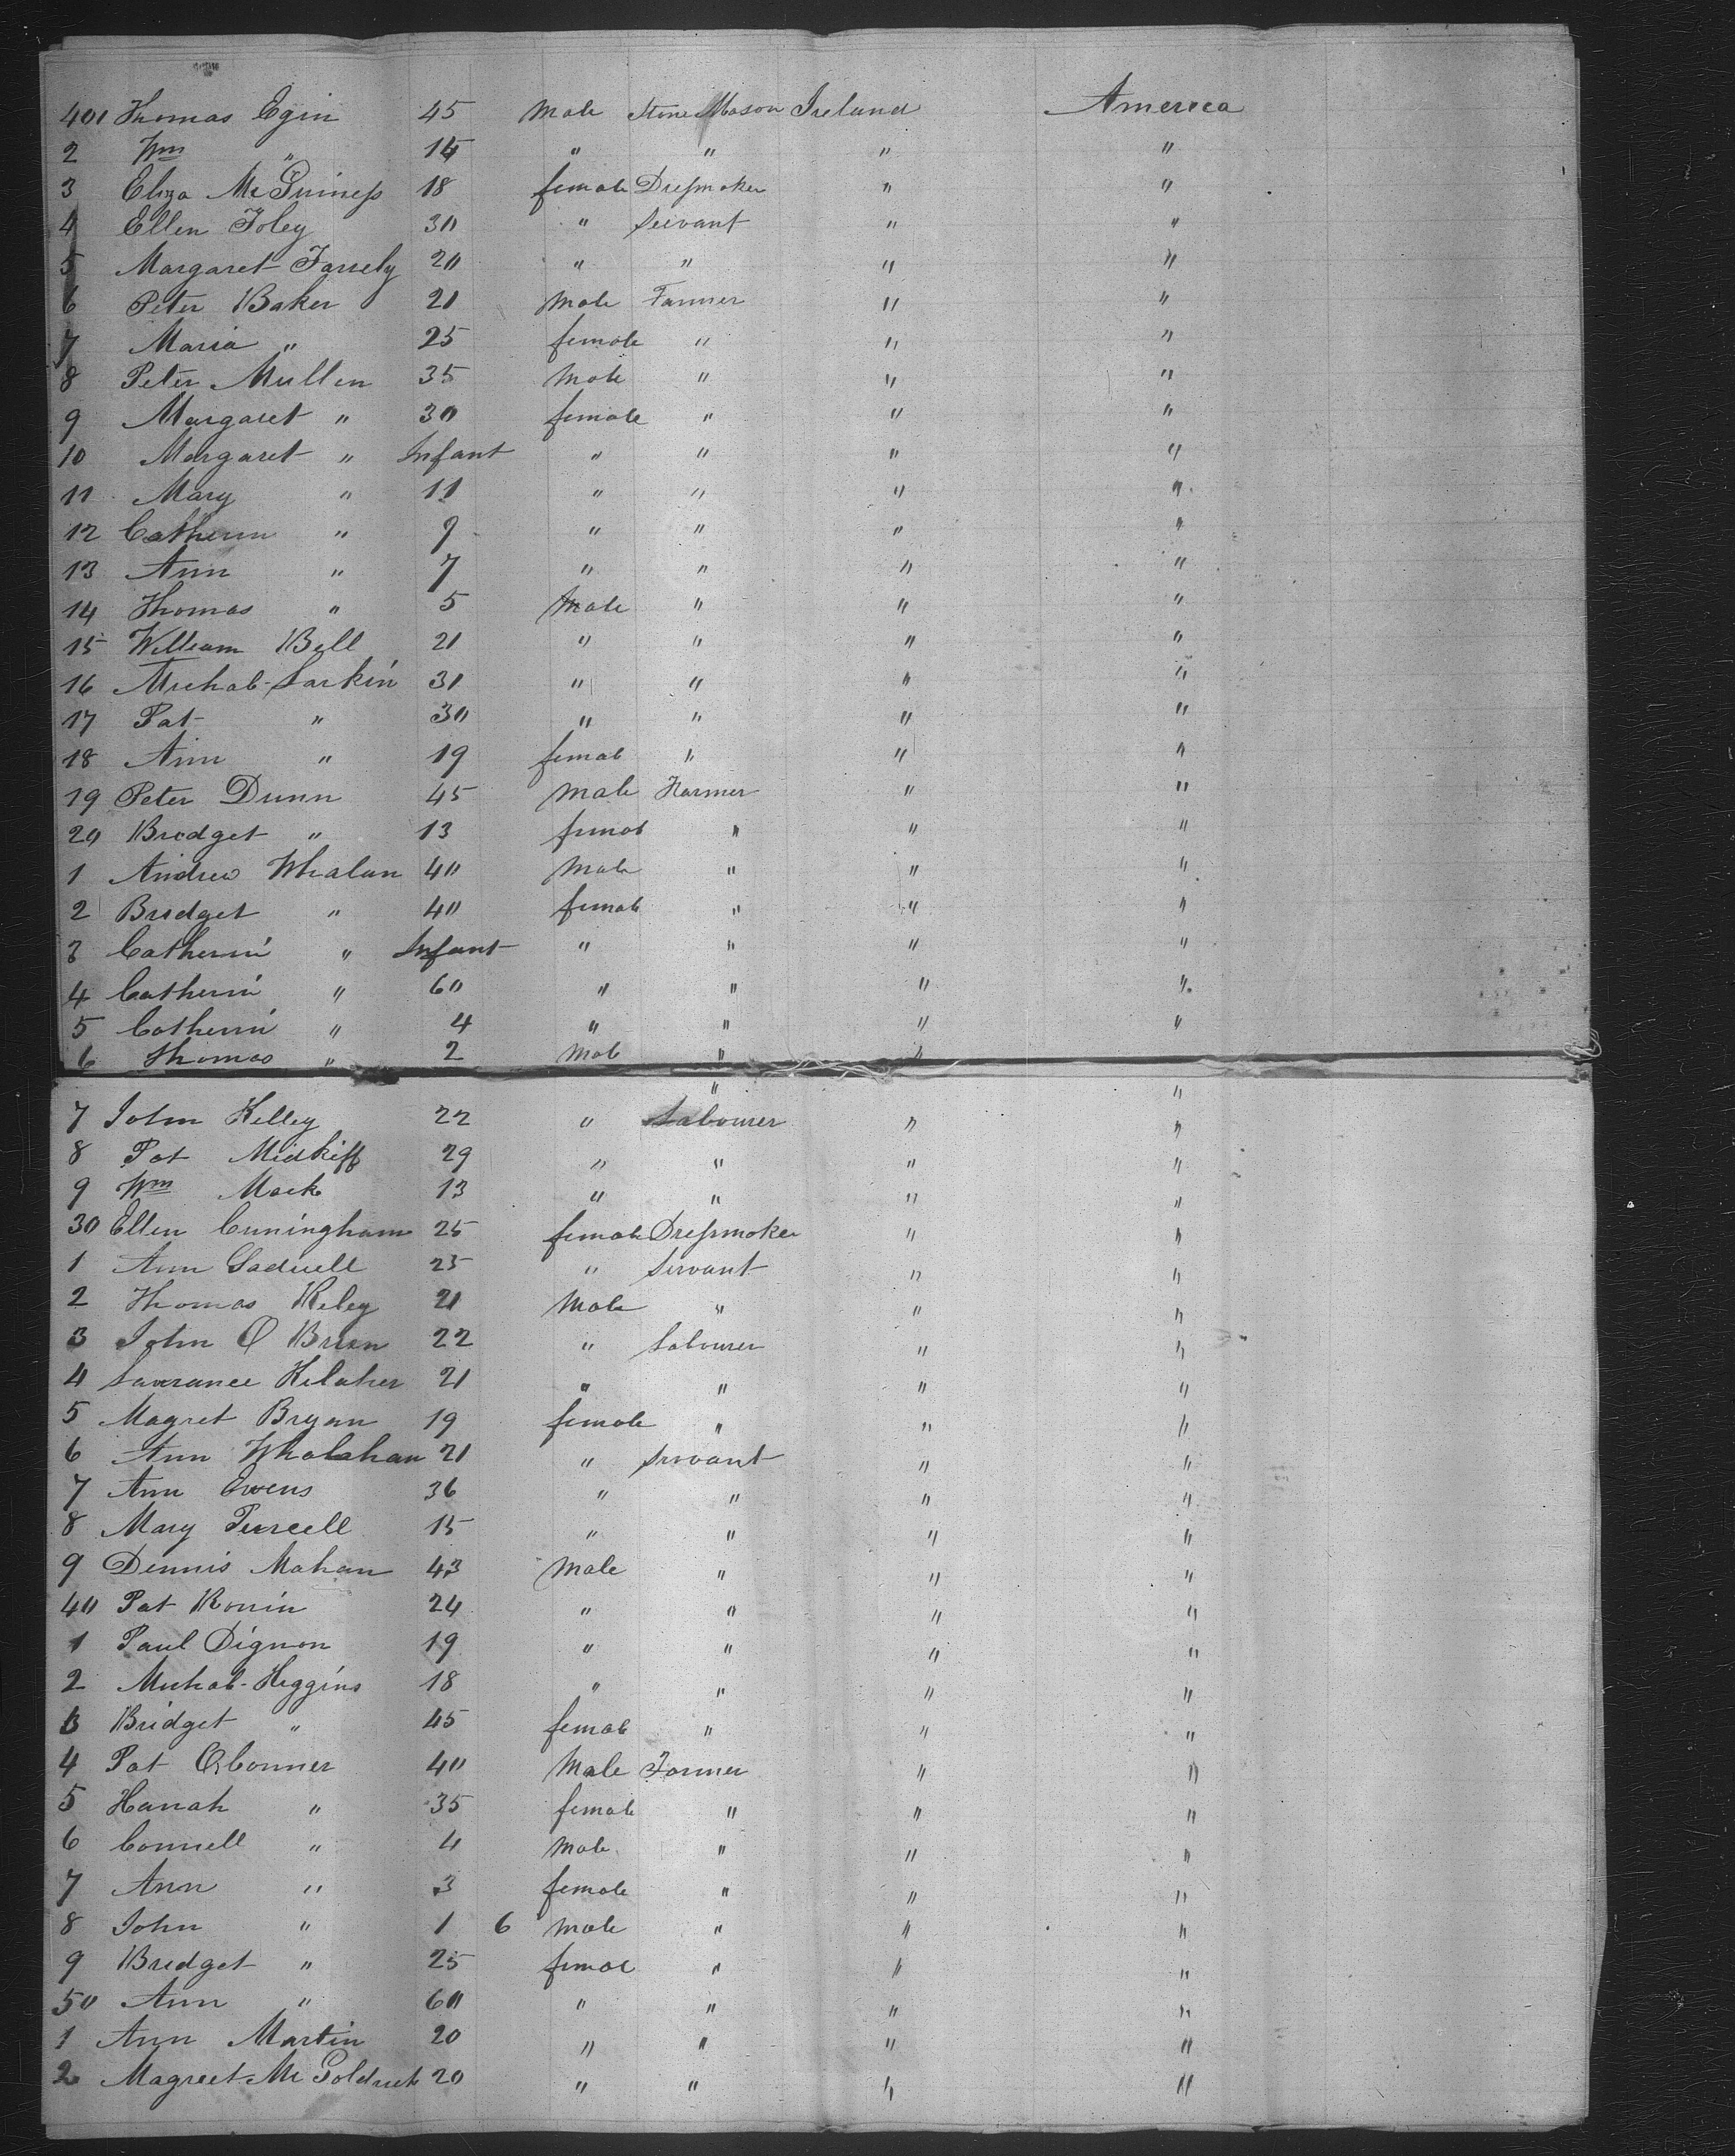 401 Thomas Egin 45 Male Stone Mason Ireland America
2 Wm " 14 " " " "
3 Eliza McGuiness 18 female Dressmaker " "
4 Ellen Foley 30 " Servant " "
5 Margaret Farrely 20 " " " "
6 Peter Baker 21 Male Farmer " "
7 Maria " 25 female " " "
8 Peter Mullen 35 Male " " "
9 Margaret " 30 female " " "
10 Margaret " Infant " " " "
11 Mary " 11 " " " "
12 Catherin " 9 " " " "
13 Ann " 7 " " " "
14 Thomas " 5 Male " " "
15 William Bell 21 " " " "
16 Michal Larkin 30 " " " "
17 Pat " 30 " " " "
18 Ann " 19 femal " " "
19 Peter Dunn 45 Male Farmer " "
20 Bridget " 13 femal " " "
1 Andrew Whalan 40 Male " " "
2 Bridget " 40 femal " " "
3 Catherin " Infant " " " "
4 Catherin " 60 " " " "
5 Catherin " 4 " " " "
6 Thomas " 2 Male " " "
" "
7 John Kelley 22 " Labourer " "
8 Pat Midkiff 29 " " " "
9 Wm Mack 13 " " " "
30 Ellen Cuningham 25 female Dressmaker " "
1 Ann 25 " Servant " "
2 Thomas Keley 21 Male " " "
3 John O Brien 22 " Labourer " "
4 Lawrance Kelaher 21 " " " "
5 Magret Bryan 19 female " " "
6 Ann Whalahan 21 " Servant " "
7 Ann Owens 36 " " " "
8 Mary Purcell 15 " " " "
9 Dennis Mahan 43 Male " " "
40 Pat Ronin 24 " " " "
1 Paul Dignon 19 " " " "
2 Michal Higgins 18 " " " "
3 Bridget " 45 femal " " "
4 Pat OConner 40 Male Farmer " "
5 Hanah " 35 female " " "
6 Connell " 4 Male " " "
7 Ann " 3 female " " "
8 John " 1 6 Male " " "
9 Bridget " 25 femal " " "
50 Ann " 60 " " " "
1 Ann Martin 20 " " " "
2 Magreet McGoldrick 20 " " " "